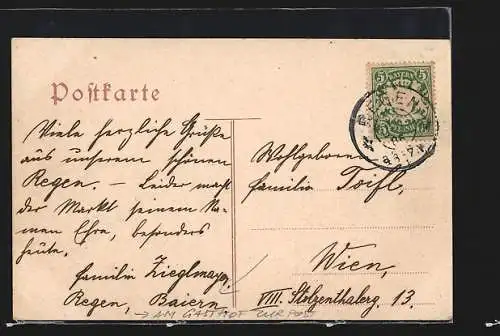 Postkarte
5 BAYERN 5
REGEN
Viele herzliche Grüße
aus unserem schönen
Regen. — Leider macht
der Markt seinem Na-
men Ehre, besonders
heute.
Familie Zieglmayr,
Regen, Baiern
→ AM GASTHOF ZUR POST
Wohlgeboren
Familie Toifl,
Wien,
VIII. Stolzenthalerg. 13.